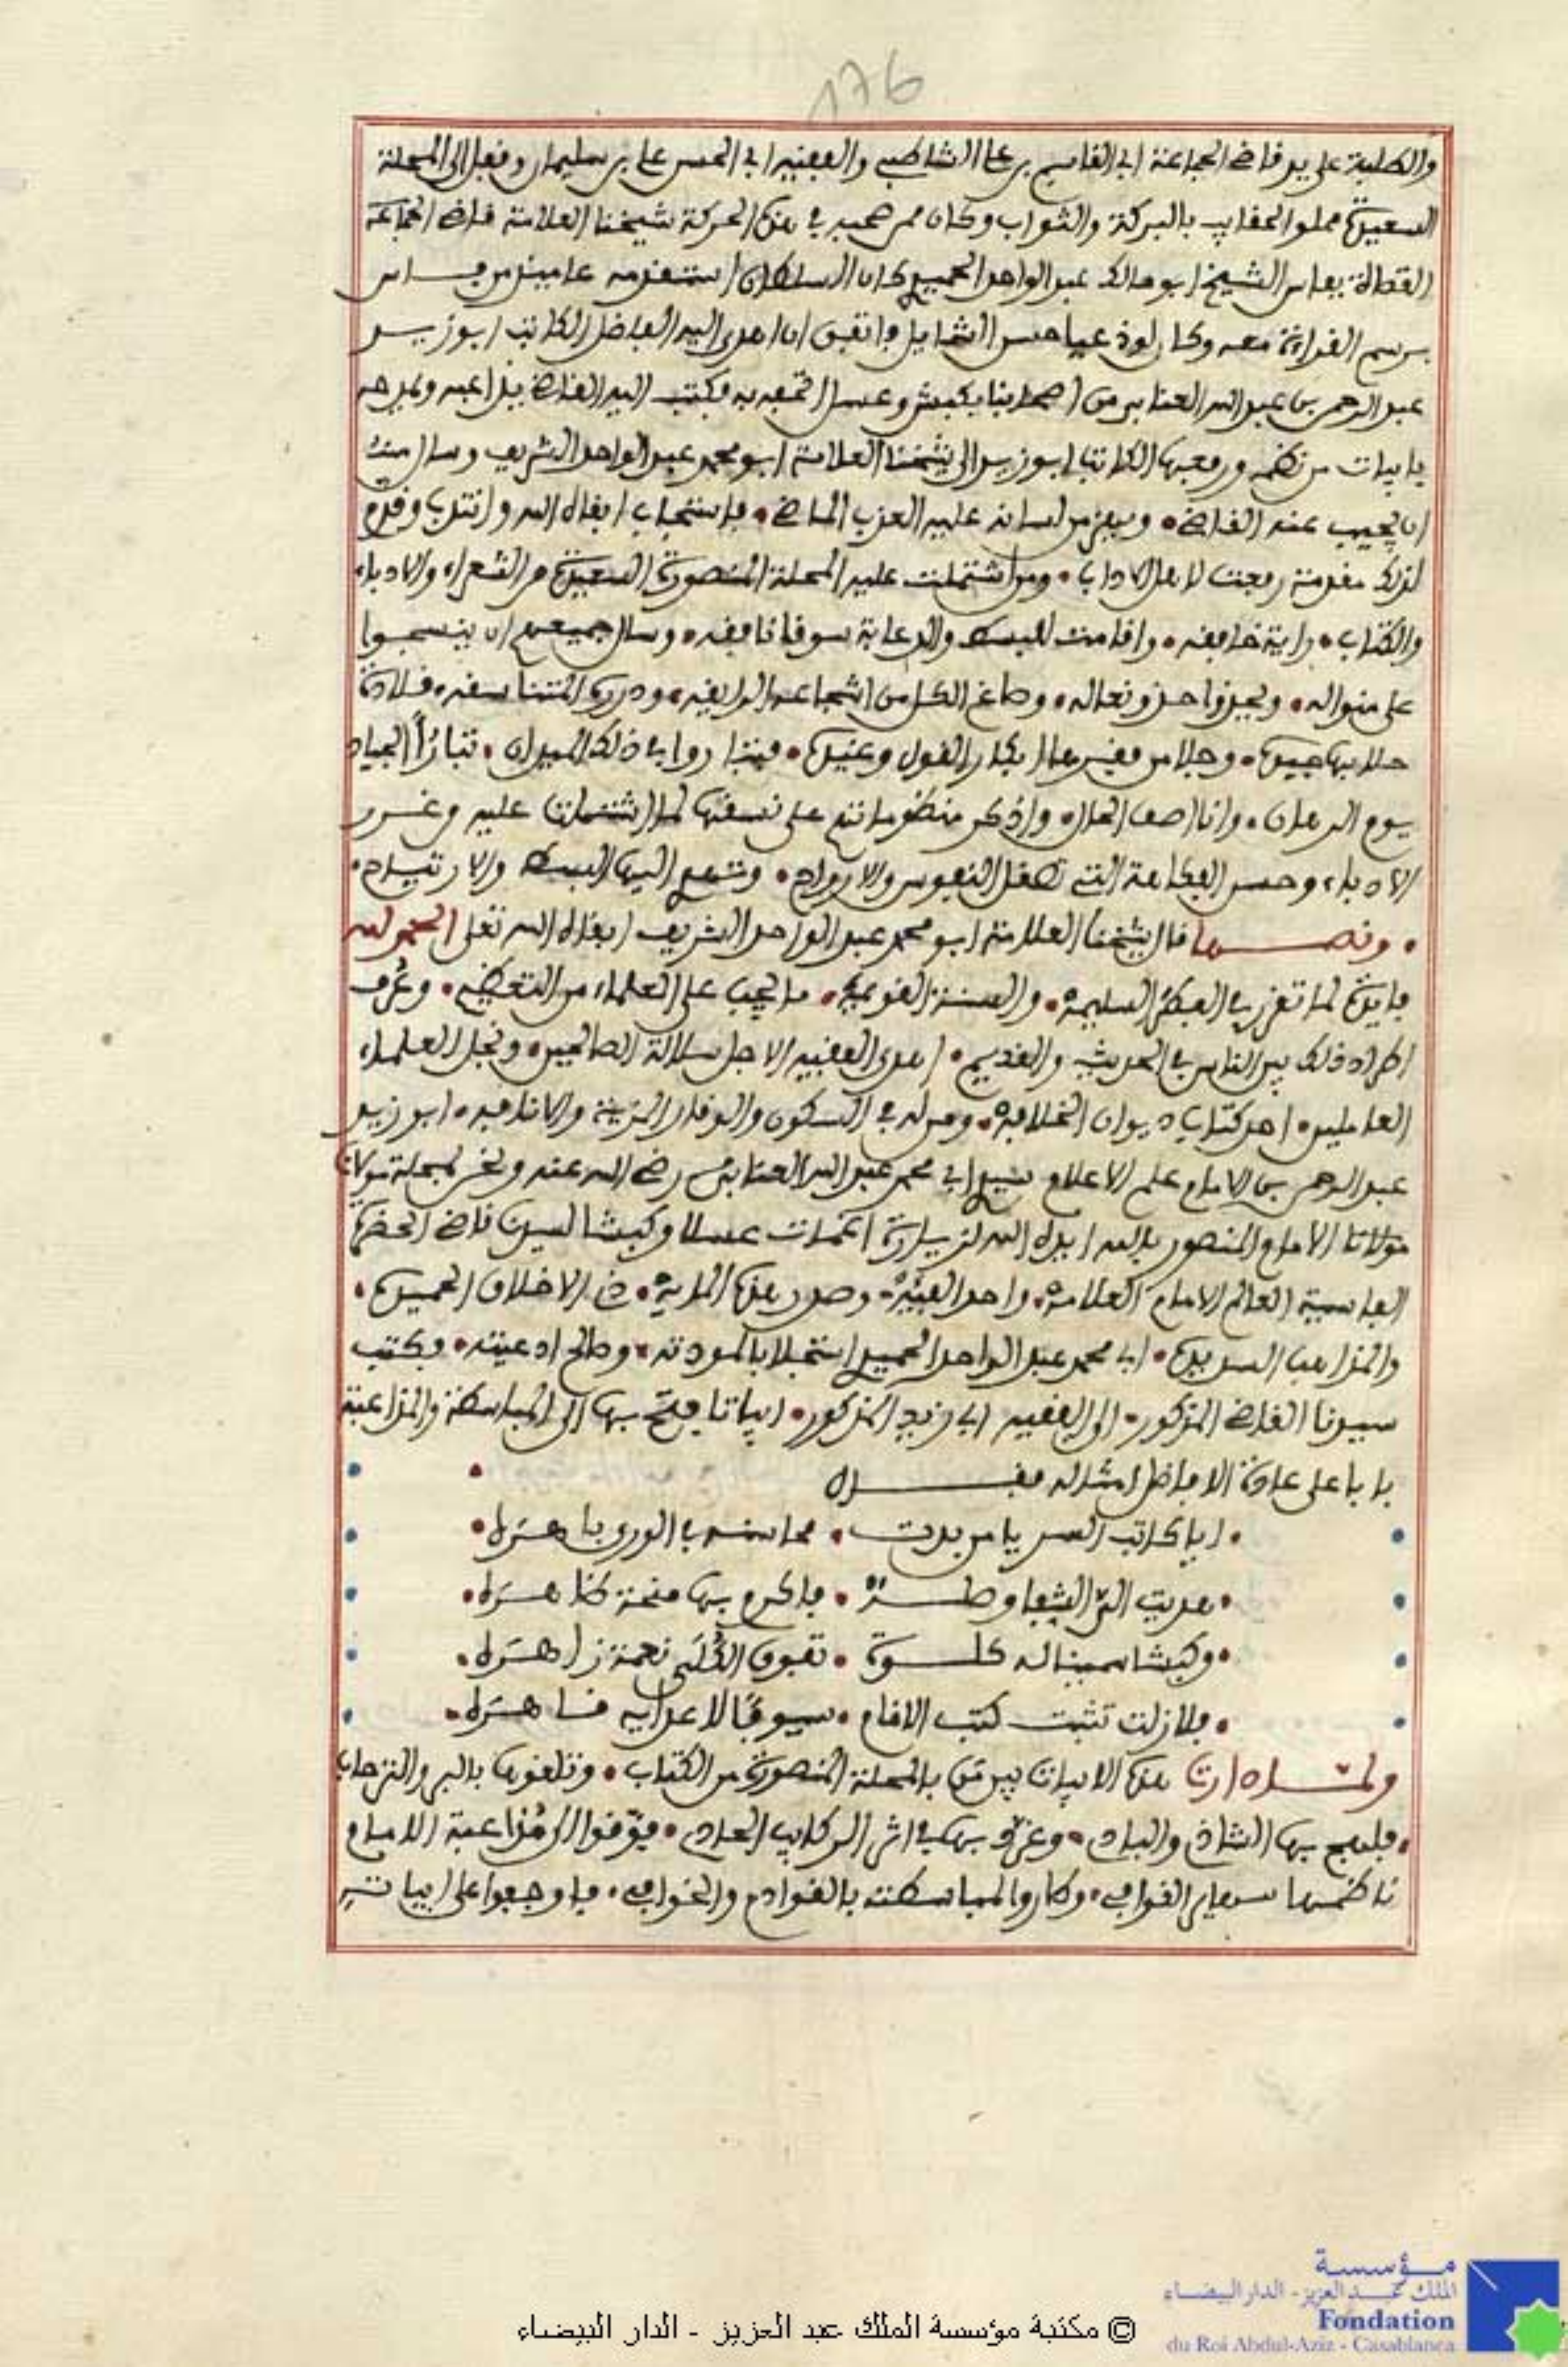 176
والطلبة على يد قاضي الجماعة ابي القاسم بن علي الشاطبي والفقيه ابي الحسن علي بن سليمان وقفل الى المحلة
السعيدة مملو الحقايب بالبركة والثواب وكان ممن صحبه في هذه الحركة شيخنا العلامة قاضي الجماعة
بفاس الشيخ ابو مالك عبد الواحد الحميدي كان السلطان استقدمه عامين من فاس
برسم القراءة معه وكان لوذعيا حسن الشمايل واتفق ان اهدى اليه الفاضل الكاتب ابو زيد
عبد الرحمن بن عبد الله العنابي من اصحابنا بكبش وعسل اتحفه به فكتب اليه القاضي يداعبه ويمدحه
بابيات من نظمه ورفعها الكاتب ابو زيد الى شيخنا العلامة ابو محمد عبد الواحد الشريف وسال منه
ان يجيب عنه القاضي • من لسانه عليه العزب الماضي • فاستجاب ابقاه الله وانتدب وقدم
لذلك مقدمة رفعت لاهل الاداب • ومن اشتملت عليه المحلة المنصورة السعيدة من الشعراء والادباء
والكتاب • راية خافقه • واقامت للبسط والدعابة سوقا نافقه • وسال جميعهم ان ينسجوا
على منواله • ويحذوا حذو نعاله • وصاغ الكل من اسجاعه الرايقه • ودرره المتناسقه • قلادة
حلا بها جيده • وجلا من ابكار القول وغيده • فتباروا في ذلك الميدان • تبارأ الجياد
يوم الرهان • وانا اصف الحال واذكر منظوماتهم على نسقها لما اشتملت عليه وغرر
الادباء وحسن الفكاهة التي تصقل النفوس والارواح • وتدعو اليها البسط والارتياح •
• ونصها قال شيخنا العلامة ابو محمد عبد الواحد الشريف ابقاه الله تعلى الحمد لله
فايدة لما تقرر في الفطر السليمه • والسنة القويمة • ما يجب على العلماء من التعظيم • وعُرف
اطراد ذلك بين الناس في الحديث والقديم • اهدى الفقيه الاجل سلالة الصالحين • ونجل العلماء
العاملين • احد كتاب ديوان الخلافه • ومن له في السكون والوقار المزية والانافه • ابو زيد
عبد الرحمن بن الامام علم الاعلام سيدي ابي محمد عبد الله العنابي رضي الله عنه ونحن بمحلة مولانا
مولانا الامام المنصور بالله ايده الله لزيارة اغمات عسلا وكبشا لسيدنا قاضي الحضرة
الفاسية العالم الامام العلامه • واحد الفيئه • وصدر هذه المايه • ذي الاخلاق الحميده •
والمذاهب السديده • ابي محمد عبد الواحد الحميدي استجلابا لمودته • وصالح ادعيته • فكتب
سيدنا القاضي المذكور • الى الفقيه ابي زيد المذكور • ابياتا فتح بها الى المباسطة والمداعبة
بابا على عادة الافاضل امثاله فقال
• ايا كاتب السر يا من بدت • محاسنه في الورى باهره •
• هديت الى الشفا • فاكرم بها منحة ظاهره •
• وكبشا سمينا له كسوة • تفوق الكُلى نعمة زاهره •
• فلا زلت تثبت كتب الامام • سيوفا لاعدايه قاهره •
ولما دارت هذه الابيات بين من بالمحلة المنصورة من الكتاب • وتلقوها بالبر والترحاب
• فلهج بها الشاذ والباد • وغرد بها في اثر الركاب الحاد • فوقفوا الى مداعبة الامام
ناظمها سهام القوافي • وطاروا لمباسطته بالقوادم والخوافي • فاوجفوا على ابياته
© مكتبة مؤسسة الملك عبد العزيز - الدار البيضاء
مؤسسة
الملك عبد العزيز - الدار البيضاء
Fondation
du Roi Abdul-Aziz - Casablanca